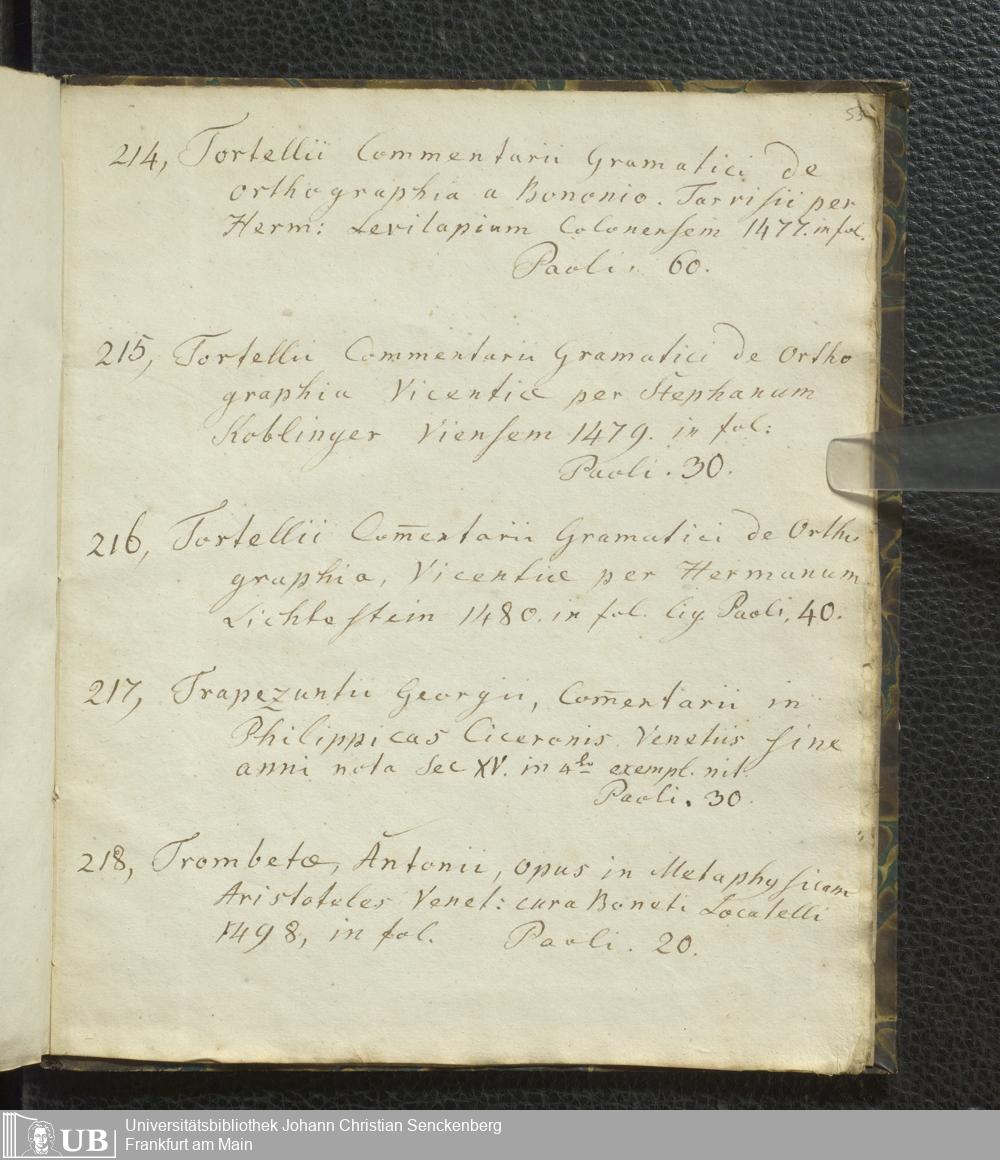 53
214, Tortellii Commentarii Gramatici de
orthographia a Bononio. Tarrisii per
Herm: Levilapium Colonensem 1477. in fol.
Paoli. 60.
215, Tortellii Commentarii Gramatici de Ortho
graphia Vicentiæ per Stephanum
Koblinger Viensem 1479. in fol:
Paoli. 30.
216, Tortellii Com̅entarii Gramatici de Ortho
graphia, Vicentiæ per Hermanum
Lichtestein 1480. in fol. lig. Paoli, 40.
217, Trapezuntii Georgii, Com̅entarii in
Philippicas Ciceronis Venetiis sine
anni nota Sec XV. in 4to exempl. nit.
Paoli. 30.
218, Trombetæ, Antonii, opus in Metaphysicam
Aristoteles Venet: cura Boneti Locatelli
1498, in fol. Paoli. 20.
UB
Universitätsbibliothek Johann Christian Senckenberg
Frankfurt am Main